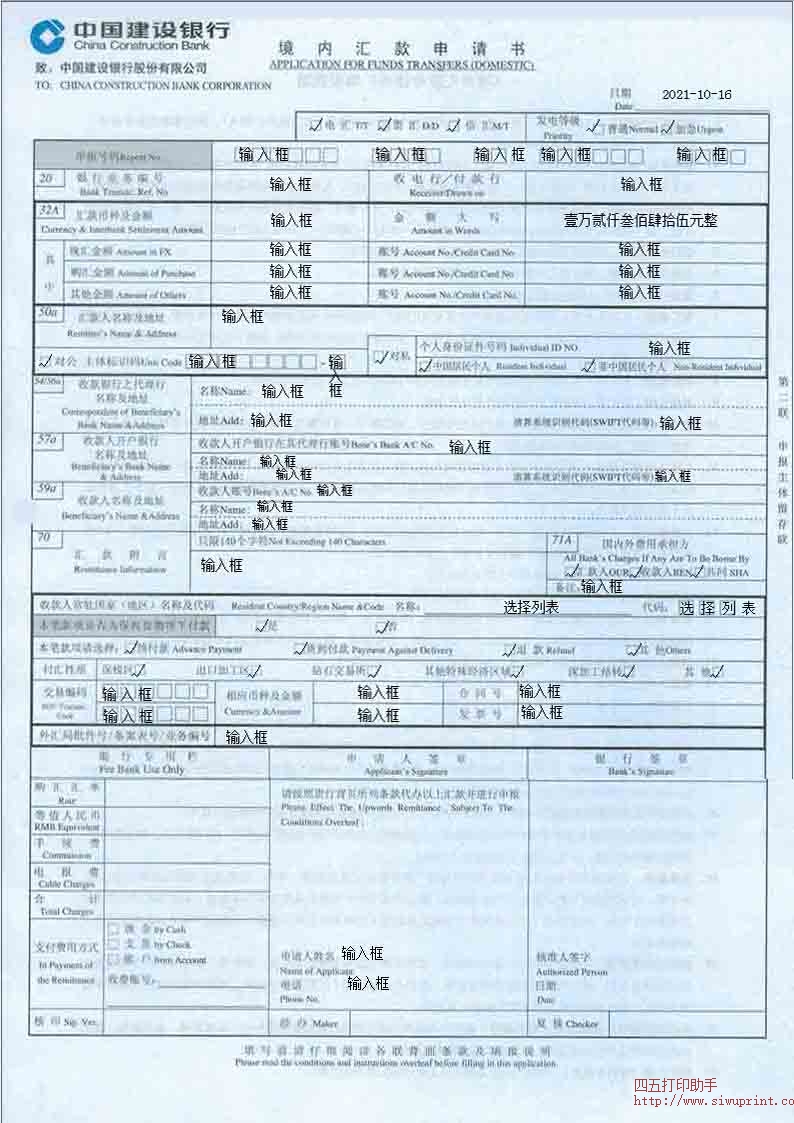 中国建设银行
China Construction Bank
境内汇款申请书
APPLICATION FOR FUNDS TRANSFERS (DOMESTIC)
致：中国建设银行股份有限公司
TO: CHINA CONSTRUCTION BANK CORPORATION
日期 Date 2021-10-16
电汇 T/T 票汇 D/D 信汇 M/T 发电等级 Priority 普通Normal 加急Urgent
申报号码Report No. 输入框 输入框 输入框 输入框 输入框
20 银行业务编号 Bank Transac. Ref. No 输入框 收电行/付款行 Receiver/Drawn on 输入框
32A 汇款币种及金额 Currency & Interbank Settlement Amount 输入框 金额大写 Amount in Words 壹万贰仟叁佰肆拾伍元整
其中 现汇金额 Amount in FX 输入框 账号 Account No./Credit Card No 输入框
购汇金额 Amount of Purchase 输入框 账号 Account No./Credit Card No 输入框
其他金额 Amount of Others 输入框 账号 Account No./Credit Card No. 输入框
50a 汇款人名称及地址 Remitter's Name & Address 输入框
对公 主体标识码Unit Code 输入框 - 输入框 对私 个人身份证件号码 Individual ID NO. 输入框
中国居民个人 Resident Individual 非中国居民个人 Non-Resident Individual
54/56a 收款银行之代理行名称及地址 Correspondent of Beneficiary's Bank Name &Address 名称Name: 输入框
地址Add: 输入框 清算系统识别代码(SWIFT代码等) 输入框
57a 收款人开户银行名称及地址 Beneficiary's Bank Name & Address 收款人开户银行在其代理行账号Bene's Bank A/C No. 输入框
名称Name: 输入框
地址Add: 输入框 清算系统识别代码(SWIFT代码等) 输入框
59a 收款人名称及地址 Beneficiary's Name &Address 收款人账号Bene's A/C No. 输入框
名称Name: 输入框
地址Add: 输入框
70 汇款附言 Remittance Information 只限140个字符Not Exceeding 140 Characters 输入框
71A 国内外费用承担方
All Bank's Charges If Any Are To Be Borne By
汇款人OUR 收款人BEN 共同 SHA
备注: 输入框
收款人常驻国家（地区）名称及代码 Resident Country/Region Name &Code 名称: 选择列表 代码: 选择列表
本笔款项是否为保税货物项下付款 是 否
本笔款项请选择: 预付款 Advance Payment 货到付款 Payment Against Delivery 退款 Refund 其他Others
付汇性质 保税区 出口加工区 钻石交易所 其他特殊经济区域 深加工结转 其他
交易编码 BOP Transac. Code 输入框 输入框 相应币种及金额 Currency &Amount 输入框 输入框 合同号 输入框
发票号 输入框
外汇局批件号/备案表号/业务编号 输入框
银行专用栏 For Bank Use Only 申请人签章 Applicant's Signature 银行签章 Bank's Signature
购汇汇率 Rate
等值人民币 RMB Equivalent
手续费 Commission
电报费 Cable Charges
合计 Total Charges
请按照贵行背页所列条款代办以上汇款并进行申报
Please Effect The Upwards Remittance , Subject To The
Conditions Overleaf :
支付费用方式 In Payment of the Remittance
现金 by Cash
支票 by Check
账户 from Account
收费账号:
申请人姓名 Name of Applicant 输入框
电话 Phone No. 输入框
核准人签字 Authorized Person
日期 Date
核印 Sig. Ver. 经办 Maker 复核 Checker
填写前请仔细阅读各联背面条款及填报说明
Please read the conditions and instructions overleaf before filling in this application.
第二联 申报主体留存联
四五打印助手
http://www.siwuprint.com